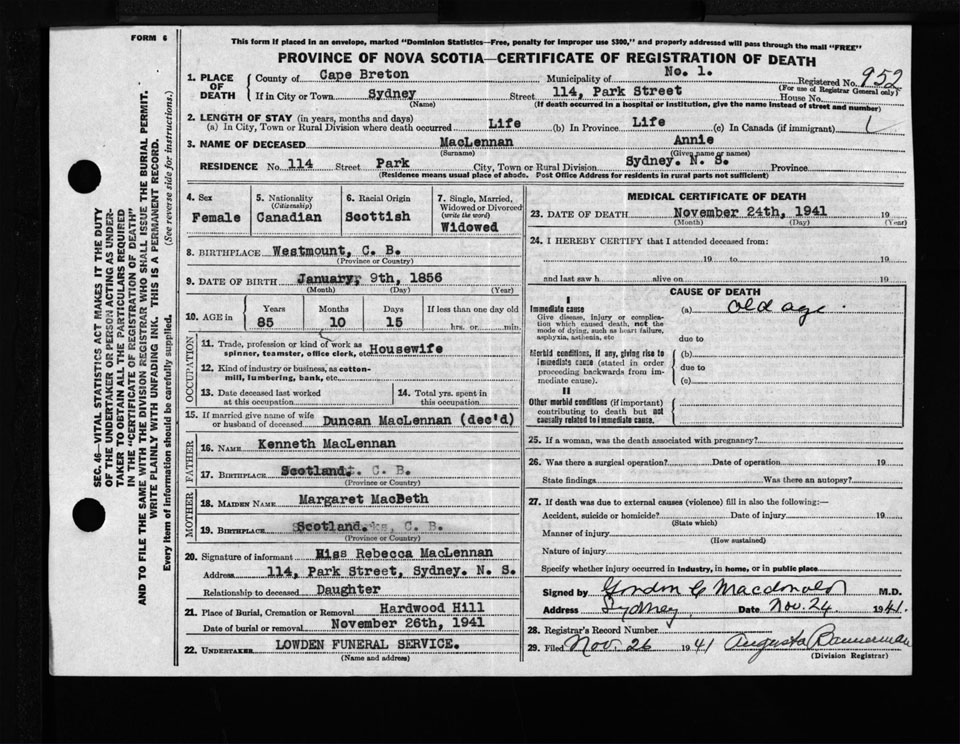 FORM 6
This form if placed in an envelope, marked "Dominion Statistics—Free, penalty for improper use $300," and properly addressed will pass through the mail "FREE"
PROVINCE OF NOVA SCOTIA—CERTIFICATE OF REGISTRATION OF DEATH
SEC. 46—VITAL STATISTICS ACT MAKES IT THE DUTY
OF THE UNDERTAKER OR PERSON ACTING AS UNDER-
TAKER TO OBTAIN ALL THE PARTICULARS REQUIRED
IN THE "CERTIFICATE OF REGISTRATION OF DEATH"
AND TO FILE THE SAME WITH THE DIVISION REGISTRAR WHO SHALL ISSUE THE BURIAL PERMIT.
WRITE PLAINLY WITH UNFADING INK. THIS IS A PERMANENT RECORD.
Every item of information should be carefully supplied. (See reverse side for instructions.)
1. PLACE OF DEATH County of Cape Breton Municipality of No. 1. Registered No. 952
(For use of Registrar General only)
If in City or Town Sydney Street 114, Park Street House No.
(Name) (If death occurred in a hospital or institution, give the name instead of street and number)
2. LENGTH OF STAY (in years, months and days)
(a) In City, Town or Rural Division where death occurred Life (b) In Province Life (c) In Canada (if immigrant)
3. NAME OF DECEASED MacLennan Annie
(Surname) (Given name or names)
RESIDENCE No. 114 Street Park City, Town or Rural Division Sydney. N. S. Province
(Residence means usual place of abode. Post Office Address for residents in rural parts not sufficient)
4. Sex Female
5. Nationality (Citizenship) Canadian
6. Racial Origin Scottish
7. Single, Married, Widowed or Divorced (write the word) Widowed
8. BIRTHPLACE Westmount, C. B.
(Province or Country)
9. DATE OF BIRTH January, 9th, 1856
(Month) (Day) (Year)
10. AGE in Years Months Days If less than one day old
85 10 15 hrs. or min.
OCCUPATION
11. Trade, profession or kind of work as
spinner, teamster, office clerk, etc. Housewife
12. Kind of industry or business, as cotton-
mill, lumbering, bank, etc.
13. Date deceased last worked at this occupation
14. Total yrs. spent in this occupation
15. If married give name of wife
or husband of deceased Duncan MacLennan (dec'd)
FATHER
16. NAME Kenneth MacLennan
17. BIRTHPLACE Scotland. C. B.
(Province or Country)
MOTHER
18. MAIDEN NAME Margaret MacBeth
19. BIRTHPLACE Scotland. C. B.
(Province or Country)
20. Signature of informant Miss Rebecca MacLennan
Address 114, Park Street, Sydney. N. S.
Relationship to deceased Daughter
21. Place of Burial, Cremation or Removal Hardwood Hill
Date of burial or removal November 26th, 1941
22. UNDERTAKER LOWDEN FUNERAL SERVICE.
(Name and address)
MEDICAL CERTIFICATE OF DEATH
23. DATE OF DEATH November 24th, 1941 19
(Month) (Day) (Year)
24. I HEREBY CERTIFY that I attended deceased from:
19 to 19
and last saw h alive on 19
CAUSE OF DEATH
I
Immediate cause (a) old age
Give disease, injury or complica-
tion which caused death, not the
mode of dying, such as heart failure,
asphyxia, asthenia, etc due to
Morbid conditions, if any, giving rise to (b)
immediate cause (stated in order due to
proceeding backwards from im-
mediate cause). (c)
II
Other morbid conditions (if important)
contributing to death but not
causally related to immediate cause.
25. If a woman, was the death associated with pregnancy?
26. Was there a surgical operation? Date of operation 19
State findings Was there an autopsy?
27. If death was due to external causes (violence) fill in also the following:—
Accident, suicide or homicide? Date of injury 19
(State which)
Manner of injury
(How sustained)
Nature of injury
Specify whether injury occurred in industry, in home, or in public place
Signed by Gordon C Macdonald M.D.
Address Sydney Date Nov. 24 1941.
28. Registrar's Record Number
29. Filed Nov. 26 1941 Augusta Bannerman
(Division Registrar)